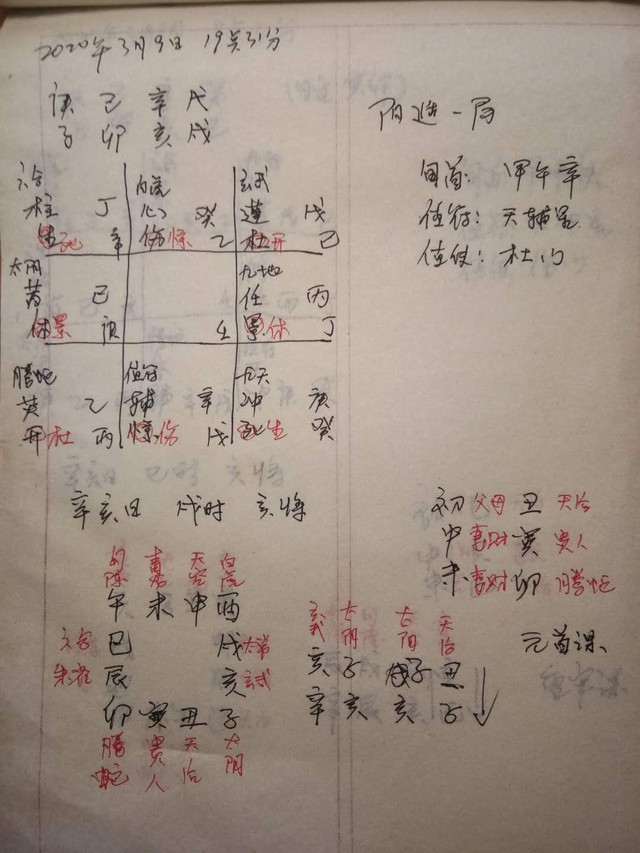 2020年3月9日 19点31分
庚 己 辛 戊
子 卯 亥 戌
阳遁一局
旬首: 甲午辛
值符: 天辅星
值使: 杜门
六合
柱 丁
死 辛
白虎
心 癸
伤惊 乙
玄武
蓬 戊
杜开 己
太阴
芮 己
休景 庚
壬
九地
任 丙
景休 丁
腾蛇
英 乙
开杜 丙
值符
辅 辛
惊伤 戊
九天
冲 庚
死生 癸
辛亥日 戌时 亥将
勾陈 青龙 天空 白虎
午 未 申 酉
六合 巳 戌 太常
朱雀 辰 亥 玄武
卯 寅 丑 子
腾蛇 贵人 天后 太阴
初 父母 丑 天后
中 妻财 寅 贵人
末 妻财 卯 腾蛇
元首课
玄武 太阴 太阴 天后
亥 子 子 丑
辛 亥 亥 子